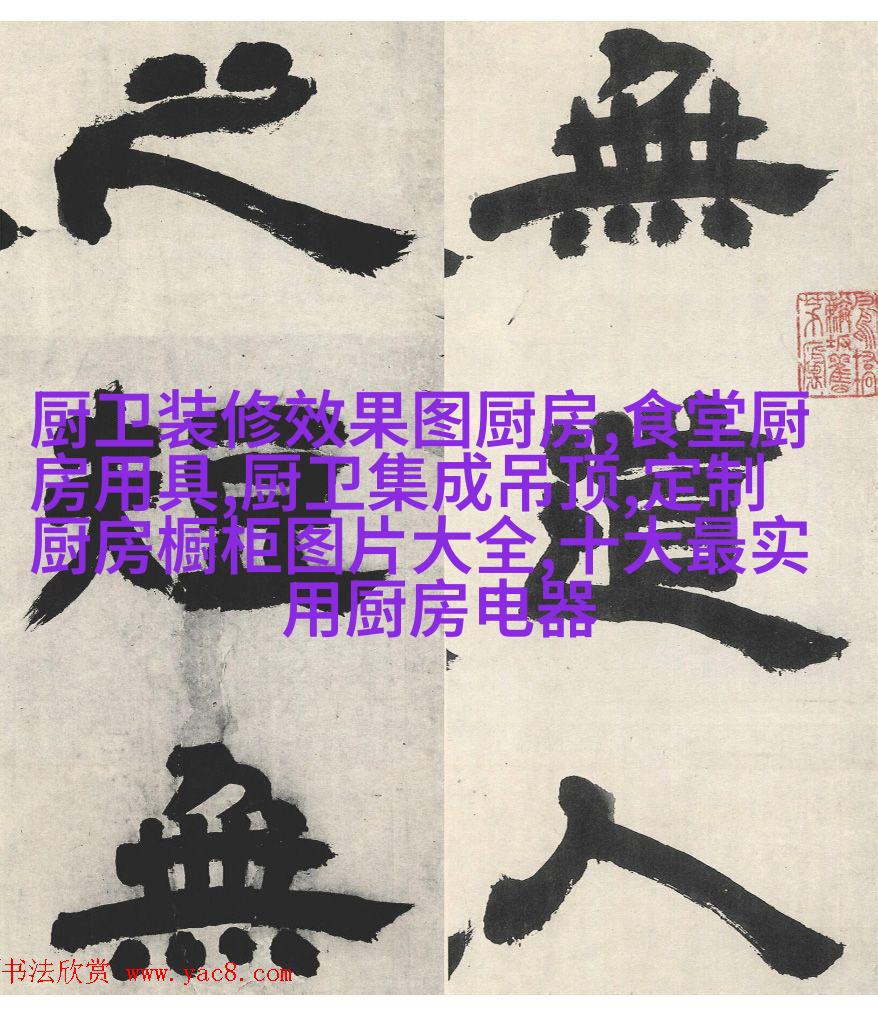 無道人
之短無
厨卫装修效果图厨房,食堂厨
房用具,厨卫集成吊顶,定制
厨房橱柜图片大全,十大最实
用厨房电器
书法欣赏 www.yac8.com